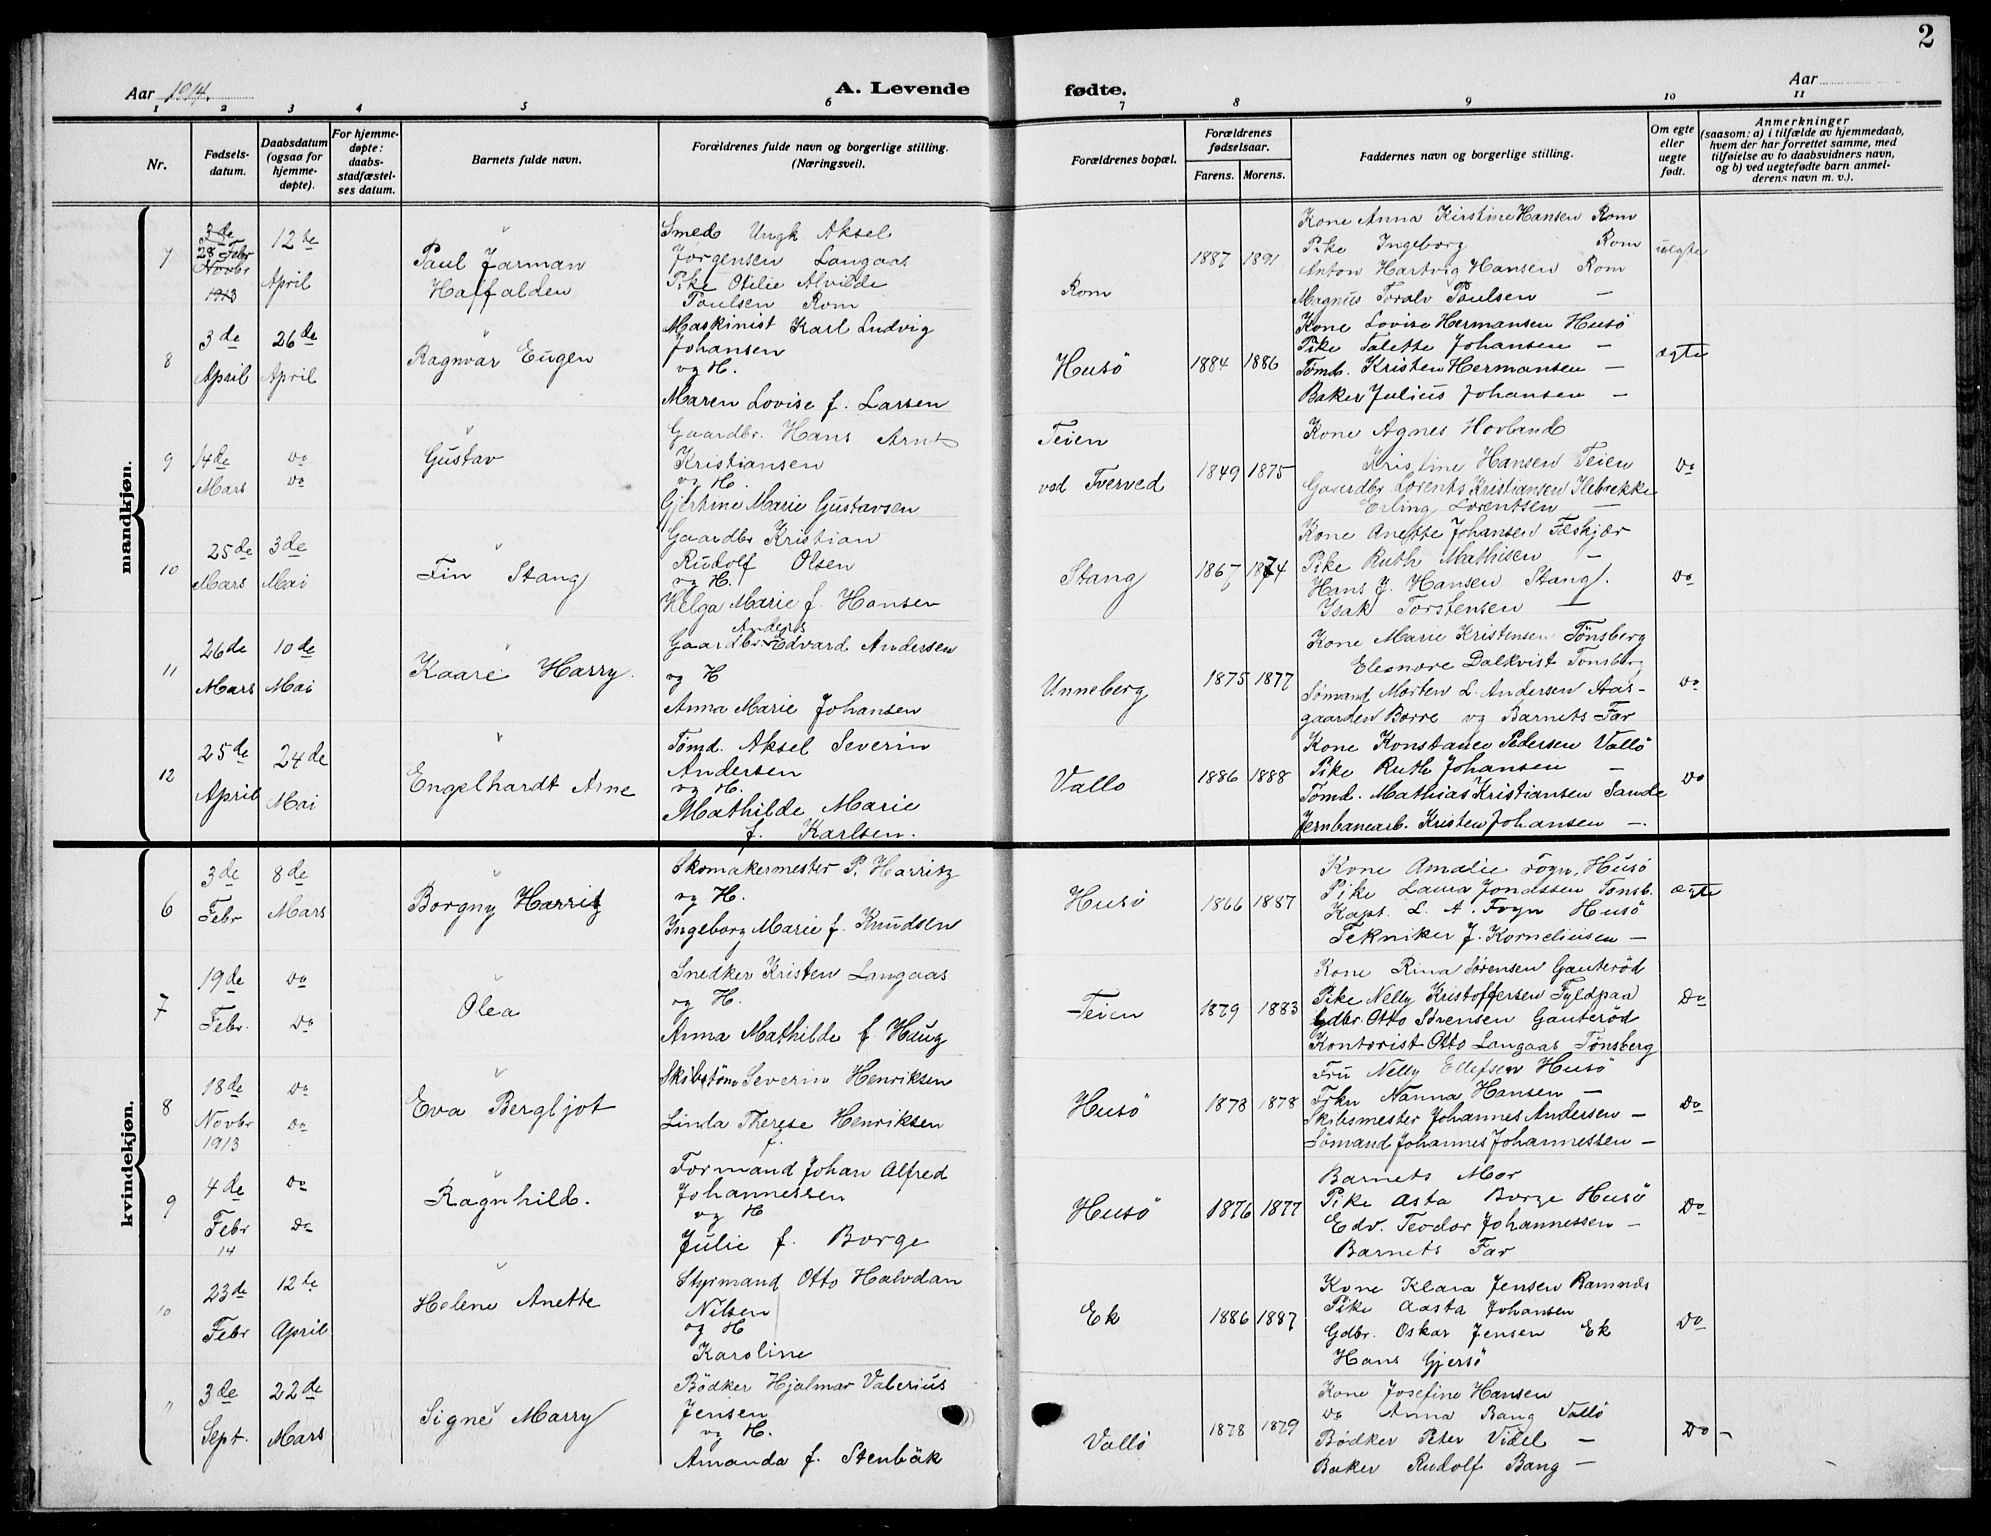 2
Aar 1914.
A. Levende
fødte.
Aar
1 2 3 4 5 6 7 8 9 10 11
Nr.
Fødsels-
datum.
Daabsdatum
(ogsaa for
hjemme-
døpte).
For hjemme-
døpte:
daabs-
stadfæstel-
ses datum.
Barnets fulde navn.
Forældrenes fulde navn og borgerlige stilling.
(Næringsvei).
Forældrenes bopæl.
Forældrenes
fødselsaar.
Farens. Morens.
Faddernes navn og borgerlige stilling.
Om egte
eller
uegte
født.
Anmerkninger
(saasom: a) i tilfælde av hjemmedaab,
hvem der har forrettet samme, med
tilføielse av to daabsvidners navn,
og b) ved uegtefødte barn anmel-
derens navn m. v.).
mandkjøn.
7
3de
28 Febr
Novbr
1913
12te
April
Paul Jarman
Halfalden
Smed Ungk Aksel
Jørgensen Langaas
Pike Otilie Alvilde
Poulsen Rom
Rom
1887 1891
Kone Anna Kirstine Hansen Rom
Pike Ingeborg Rom
Anton Hartvig Hansen Rom
Magnus Toralv Poulsen —
uægte
8
3de
April
26de
April
Ragnvar Eugen
Maskinist Karl Ludvig
Johansen
og H.
Maren Lovise f. Larsen
Husö
1884 1886
Kone Lovise Hermansen Husö
Pike Talette Johansen —
Tömb. Kristen Hermansen —
Baker Julius Johansen —
ægte
9
14de
Mars
do
do
Gustav
Gaardbr. Hans Arnt
Kristiansen
og H.
Gjertine Marie Gustavsen
Teien
ved Tverved
1849 1875
Kone Agnes Hovland
Kristine Hansen Teien
Gaardbr Lorents Kristiansen Ilebrekke
Erling Lorentsen —
Do
10
25de
Mars
3de
Mai
Fin Stang
Gaardbr Kristian
Rudolf Olsen
og H.
Helga Marie f. Hansen
Stang
1867 1874
Kone Anette Johansen Feskjær
Pike Ruth Mathisen —
Hans J. Hansen Stang
Isak Torstensen —
Do
11
26de
Mars
10de
Mai
Kaare Harry.
Anders
Gaardbr. Edvard Andersen
og H
Anna Marie Johansen
Unneberg
1875 1877
Kone Marie Kristensen Tönsberg
Eleonore Dalkvist Tönsberg
Sömand Morten L. Andersen Aas-
gaarden Borre og Barnets Far
Do
12
25de
April
24de
Mai
Engelhardt Arne
Tömd. Aksel Severin
Andersen
og H.
Mathilde Marie
f. Karlsen.
Vallo
1886 1888
Kone Konstance Pedersen Vallö
Pike Ruth Johansen —
Tömd. Mathias Kristiansen Sande
Jernbanearb. Kristen Johansen —.
Do
kvindekjøn.
6
3de
Febr
8de
Mars
Borgny Harritz
Skomakermester P. Harritz
og H.
Ingeborg Marie f. Knudsen
Husö
1866 1887
Kone Amalie Fogn, Husö
Pike Laura Jonassen Tonsb.
Kapt. L. A. Fogn Husö
Tekniker J. Korneliusen —
ægte
7
19de
Febr.
do
Do
Olea
Snedker Kristen Langaas
og H.
Anna Mathilde f. Haug
Teien
1879 1883
Kone Rina Sørensen Gauteröd
Pike Nelly Kristoffersen Fyldpaa
Gdbr. Otto Sörensen Gauteröd
Kontorist Otto Langaas Tönsberg
Do
8
18de
Novbr
1913
Do
Do
Eva Bergljot
Skibstöm Severin Henriksen
Linda Therese Henriksen
f.
Husö
1873 1878
Fru Nelly Ellefsen Husö
Frkn Nanna Hansen —
Skibsmester Johannes Andersen —
Sömand Johannes Johannessen —
Do
9
4de
Febr
14
do
Do
Ragnhild.
Formand Johan Alfred
Johannessen
og H
Julie f. Borge
Husö
1876 1877
Barnets Mor
Pike Asta Borge Husö
Edv. Teodor Johannessen —
Barnets Far
Do
10
23de
Febr
12te
April
Helene Anette
Styrmand Otto Halvdan
Nilsen
og H
Karoline
Ek
1886 1887
Kone Klara Jensen Ramnes
Pike Aasta Johansen
Gdbr. Oskar Jensen Ek
Hans Gjersö
Do
11
3de
Sept.
22de
Mars
Signe Marry
Bödker Hjalmar Valerius
Jensen
og H.
Amanda f. Stenbäk
Vallö
1878 1879
Kone Josefine Hansen
Do Anna Bang Vallö
Bödker Peter Videl —
Baker Rudolf Bang —
Do —